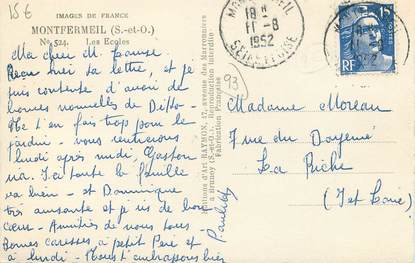 15€
IMAGES DE FRANCE
MONTFERMEIL (S.-et-O.)
No 524. Les Ecoles
Ma chère M.
Reçu hier ta lettre, et je
suis contente d'avoir de
bonnes nouvelles de
Ne t'en fais trop pour le
jardin - vous rentrerons
lundi après midi, Gaston
ira. Ici toute la famille
va bien - et Dominique
très amusante et je ris de bon
cœur - Amitiés de vous tous
Bonnes caresses à petit Père et
à lundi - Nous t'embrassons bien
Editions d'Art RAYMON, 17, avenue des Marronniers
à Brunoy (S.-et-O.) Reproduction interdite
Fabrication Française
18 H
11-8
1952
SEINE-ET-OISE
93
15F
RF
Madame Moreau
7 rue du Doyenné
La Riche
(Ind et Loire)